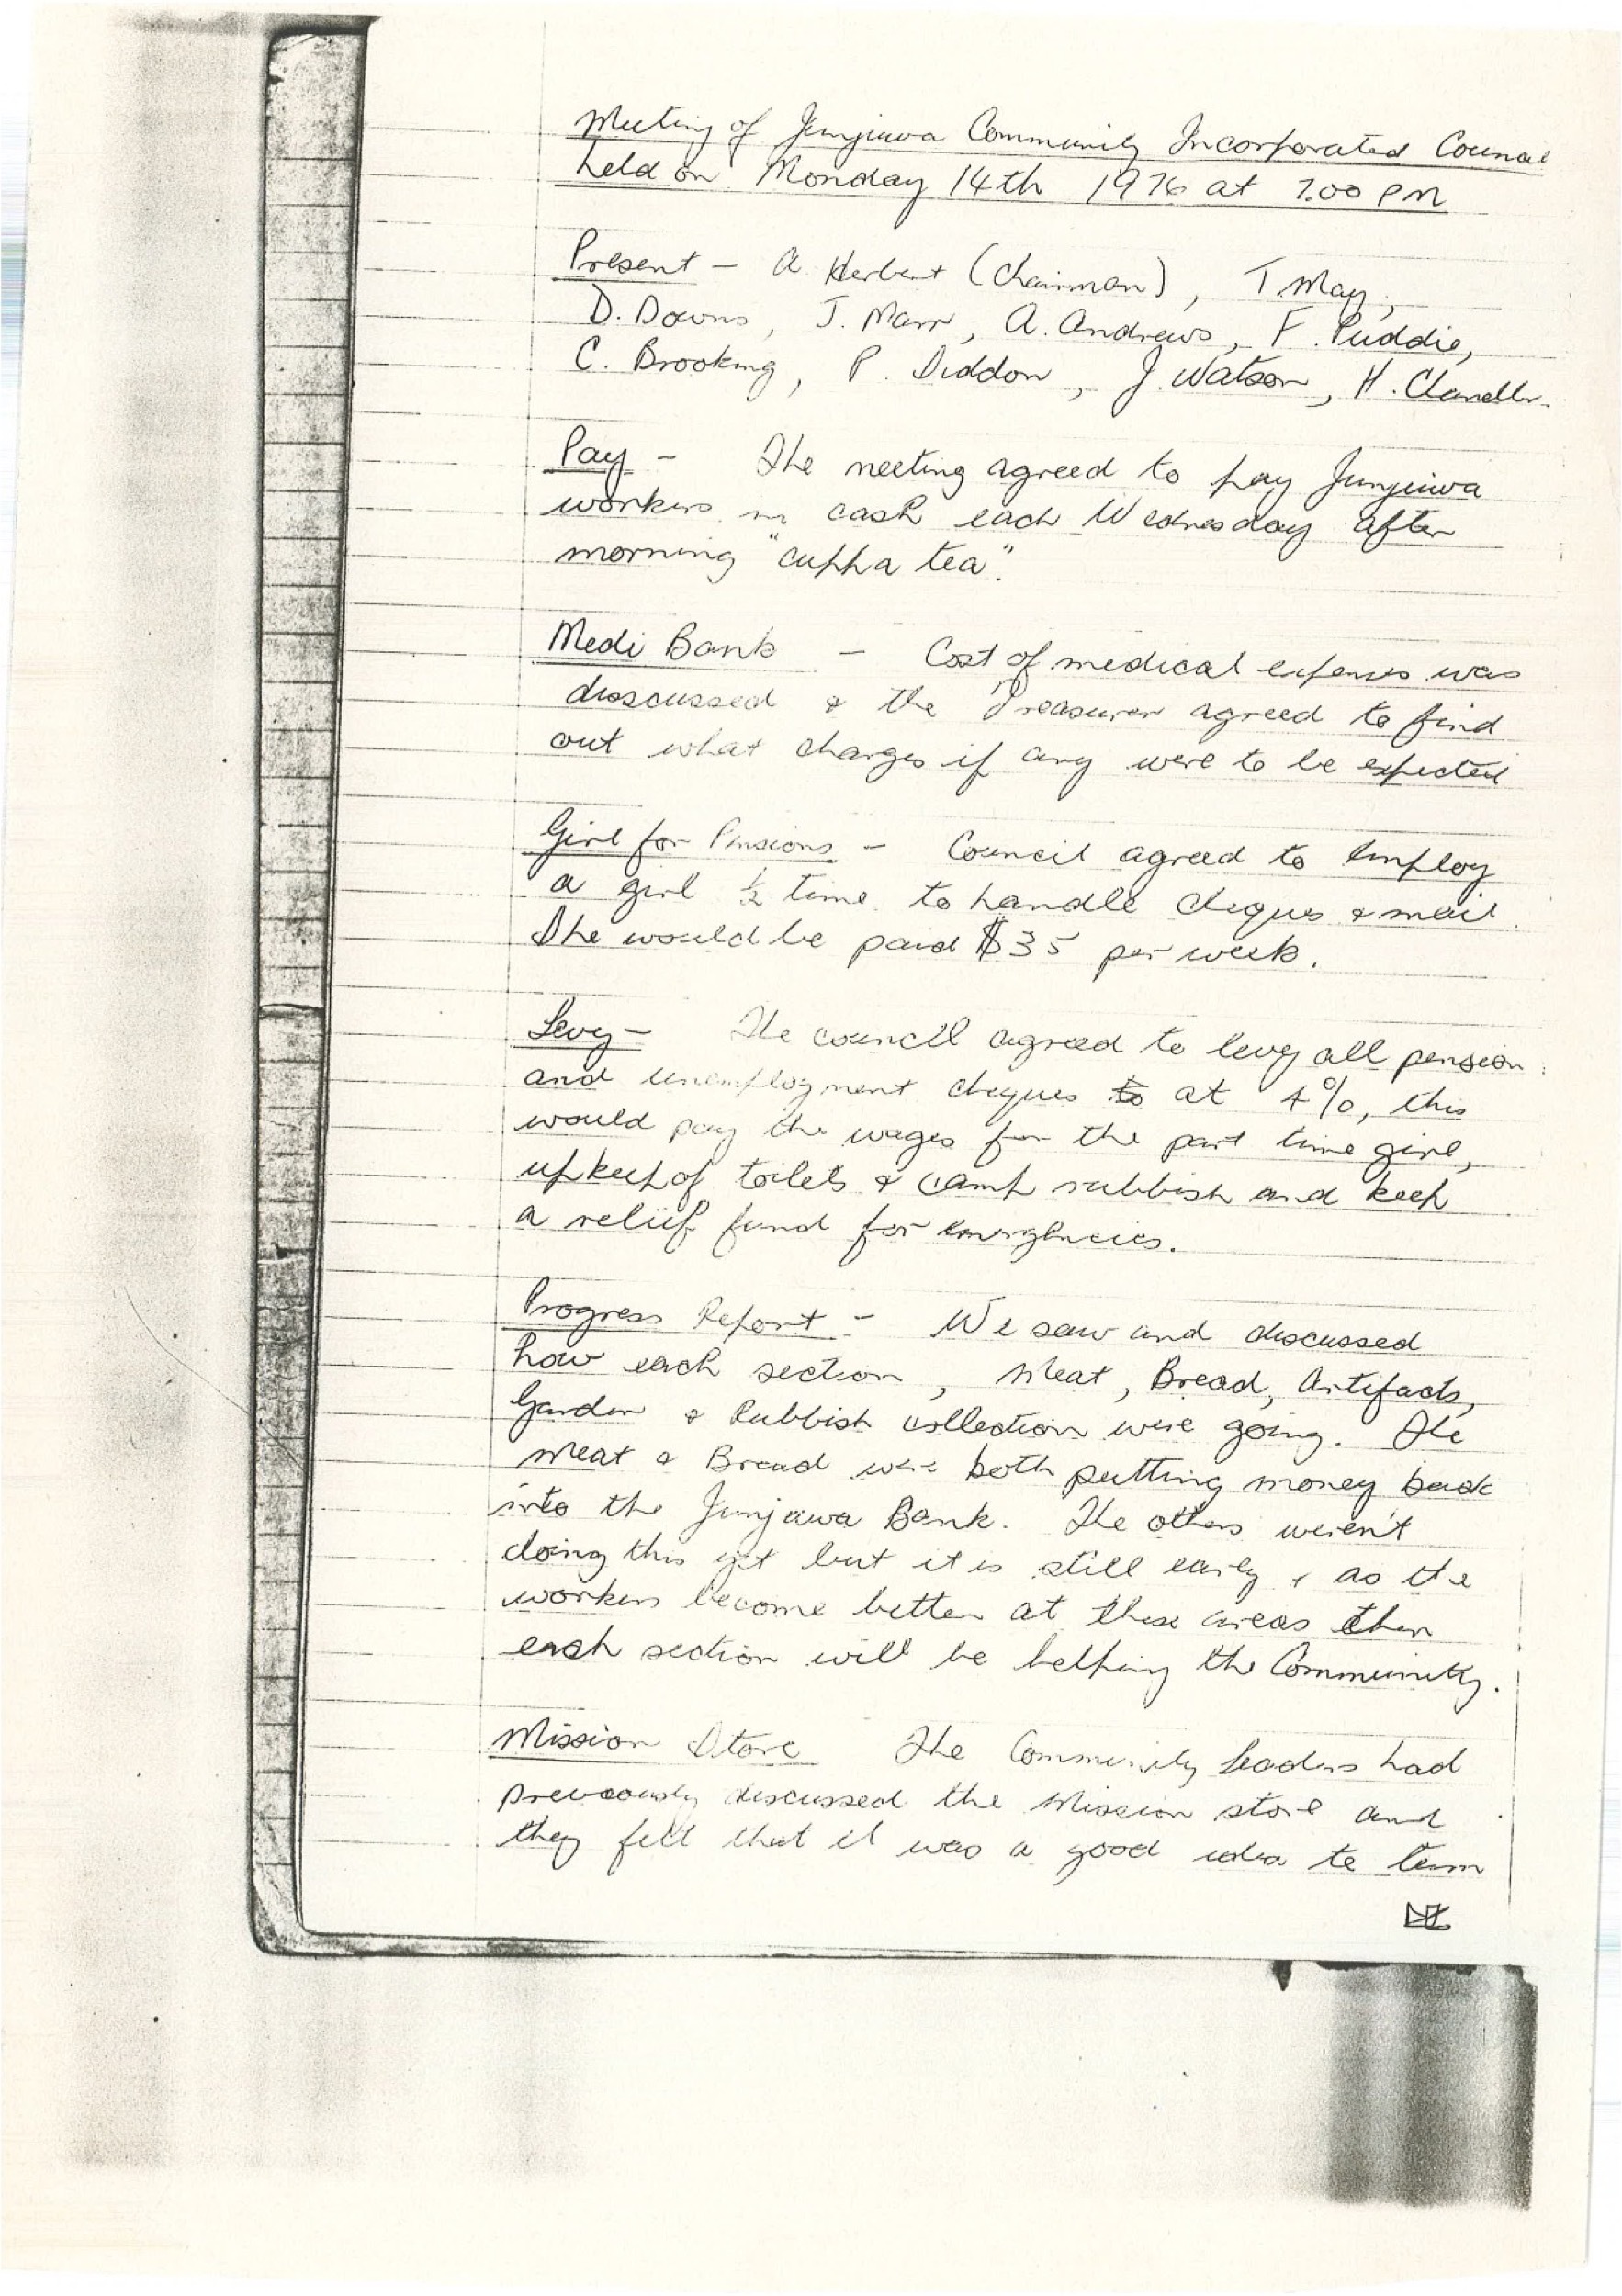 Meeting of Junjuwa Community Incorporated Council
held on Monday 14th 1976 at 7.00 PM
Present - A Herbert (Chairman), T May,
D. Downs, J. Marr, A. Andrews, F. Puddie,
C. Brooking, P. Siddon, J. Watson, H. Chandler.
Pay - The meeting agreed to pay Junjuwa
workers in cash each Wednesday after
morning "cuppa tea".
Medi Bank - Cost of medical expenses was
disscussed & the Treasurer agreed to find
out what charges if any were to be expected
Girl for Pensions - Council agreed to employ
a girl ½ time to handle cheques & mail.
She would be paid $35 per week.
Levy - The council agreed to levy all pension
and unemployment cheques to at 4%, this
would pay the wages for the part time girl,
upkeep of toilets & camp rubbish and keep
a relief fund for emergencies.
Progress Report - We saw and discussed
how each section, Meat, Bread, Artifacts,
Garden & Rubbish collection were going. The
Meat & Bread were both putting money back
into the Junjawa Bank. The others weren't
doing this yet but it is still early & as the
workers become better at these areas then
each section will be helping the Community.
Mission Store The Community Leaders had
previously discussed the Mission store and
they felt that it was a good idea to